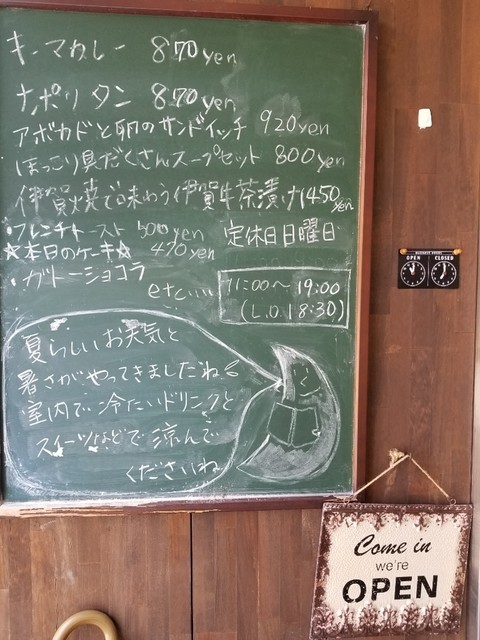 キーマカレー 870yen
ナポリタン 870yen
アボカドと卵のサンドイッチ 920yen
ほっこり具だくさんスープセット 800yen
伊賀焼で味わう伊賀牛茶漬け1450yen
・フレンチトースト 500yen
定休日日曜日
☆本日のケーキ☆ 470yen
・ガトーショコラ
etc....
11:00～19:00
(L.O.18:30)
夏らしいお天気と
暑さがやってきましたね
室内で冷たいドリンクと
スイーツなどで涼んで
くださいね
BUSINESS HOURS
OPEN CLOSED
Come in
we're
OPEN